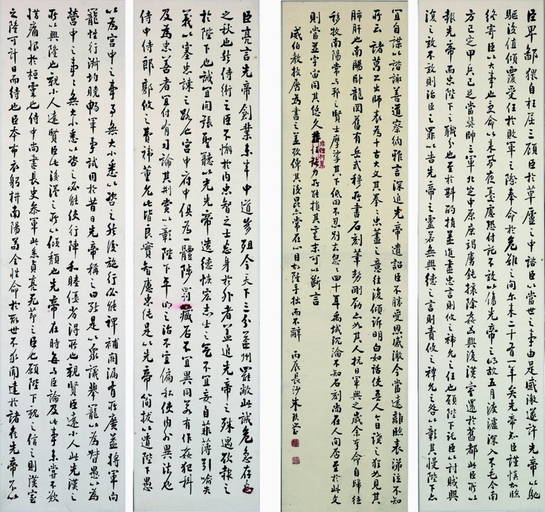 臣亮言先帝創業未半中道崩殂今天下三分益州罷敝此誠危急存亡
之秋也然侍衛之臣不懈於內忠志之士忘身於外者蓋追先帝之殊遇欲報之
於陛下也誠宜開張聖聽以光先帝遺德恢宏志士之氣不宜妄自菲薄引喻失
義以塞忠諫之路也宮中府中俱為一體陟罰臧否不宜異同若有作奸犯科
及為忠善者宜付有司論其刑賞以彰陛下平明之治不宜偏私使內外異法也
侍中侍郎郭攸之費禕董允等此皆良實志慮忠純是以先帝簡拔以遺陛下愚
以為宮中之事事無大小悉以咨之然後施行必能裨補闕漏有所廣益將軍向
寵性行淑均曉暢軍事試用於昔日先帝稱之曰能是以眾議舉寵以為督愚以為
營中之事事無大小悉以咨之必能使行陣和睦優劣得所也親賢臣遠小人此先漢之
所以興隆也親小人遠賢臣此後漢之所以傾頹也先帝在時每與臣論此事未嘗不歎
息痛恨於桓靈也侍中尚書長史參軍此悉貞亮死節之臣也願陛下親之信之則漢室
之隆可計日而待也臣本布衣躬耕南陽苟全性命於亂世不求聞達於諸侯先帝不以
臣卑鄙猥自枉屈三顧臣於草廬之中諮臣以當世之事由是感激遂許先帝以馳
驅後值傾覆受任於敗軍之際奉命於危難之間爾來二十有一年矣先帝知臣謹慎故臨
終寄臣以大事也受命以來夙夜憂慮恐付託不效以傷先帝之明故五月渡瀘深入不毛今南
方已定甲兵已足當獎帥三軍北定中原庶竭駑鈍攘除姦凶興復漢室還於舊都此臣所以
報先帝而忠陛下之職分也至於斟酌損益進盡忠言則攸之禕允之任也願陛下託臣以討賊興
復之效不效則治臣之罪以告先帝之靈若無興德之言則責攸之禕允之咎以彰其慢陛下亦
宜自謀以諮諏善道察納雅言深追先帝遺詔臣不勝受恩感激今當遠離臨表涕泣不知
所云 諸葛亮出師表為千古大文其拳拳忠藎之意往復傾訴明白如話使吾人
則當並宇宙同其悠久
丙辰長沙